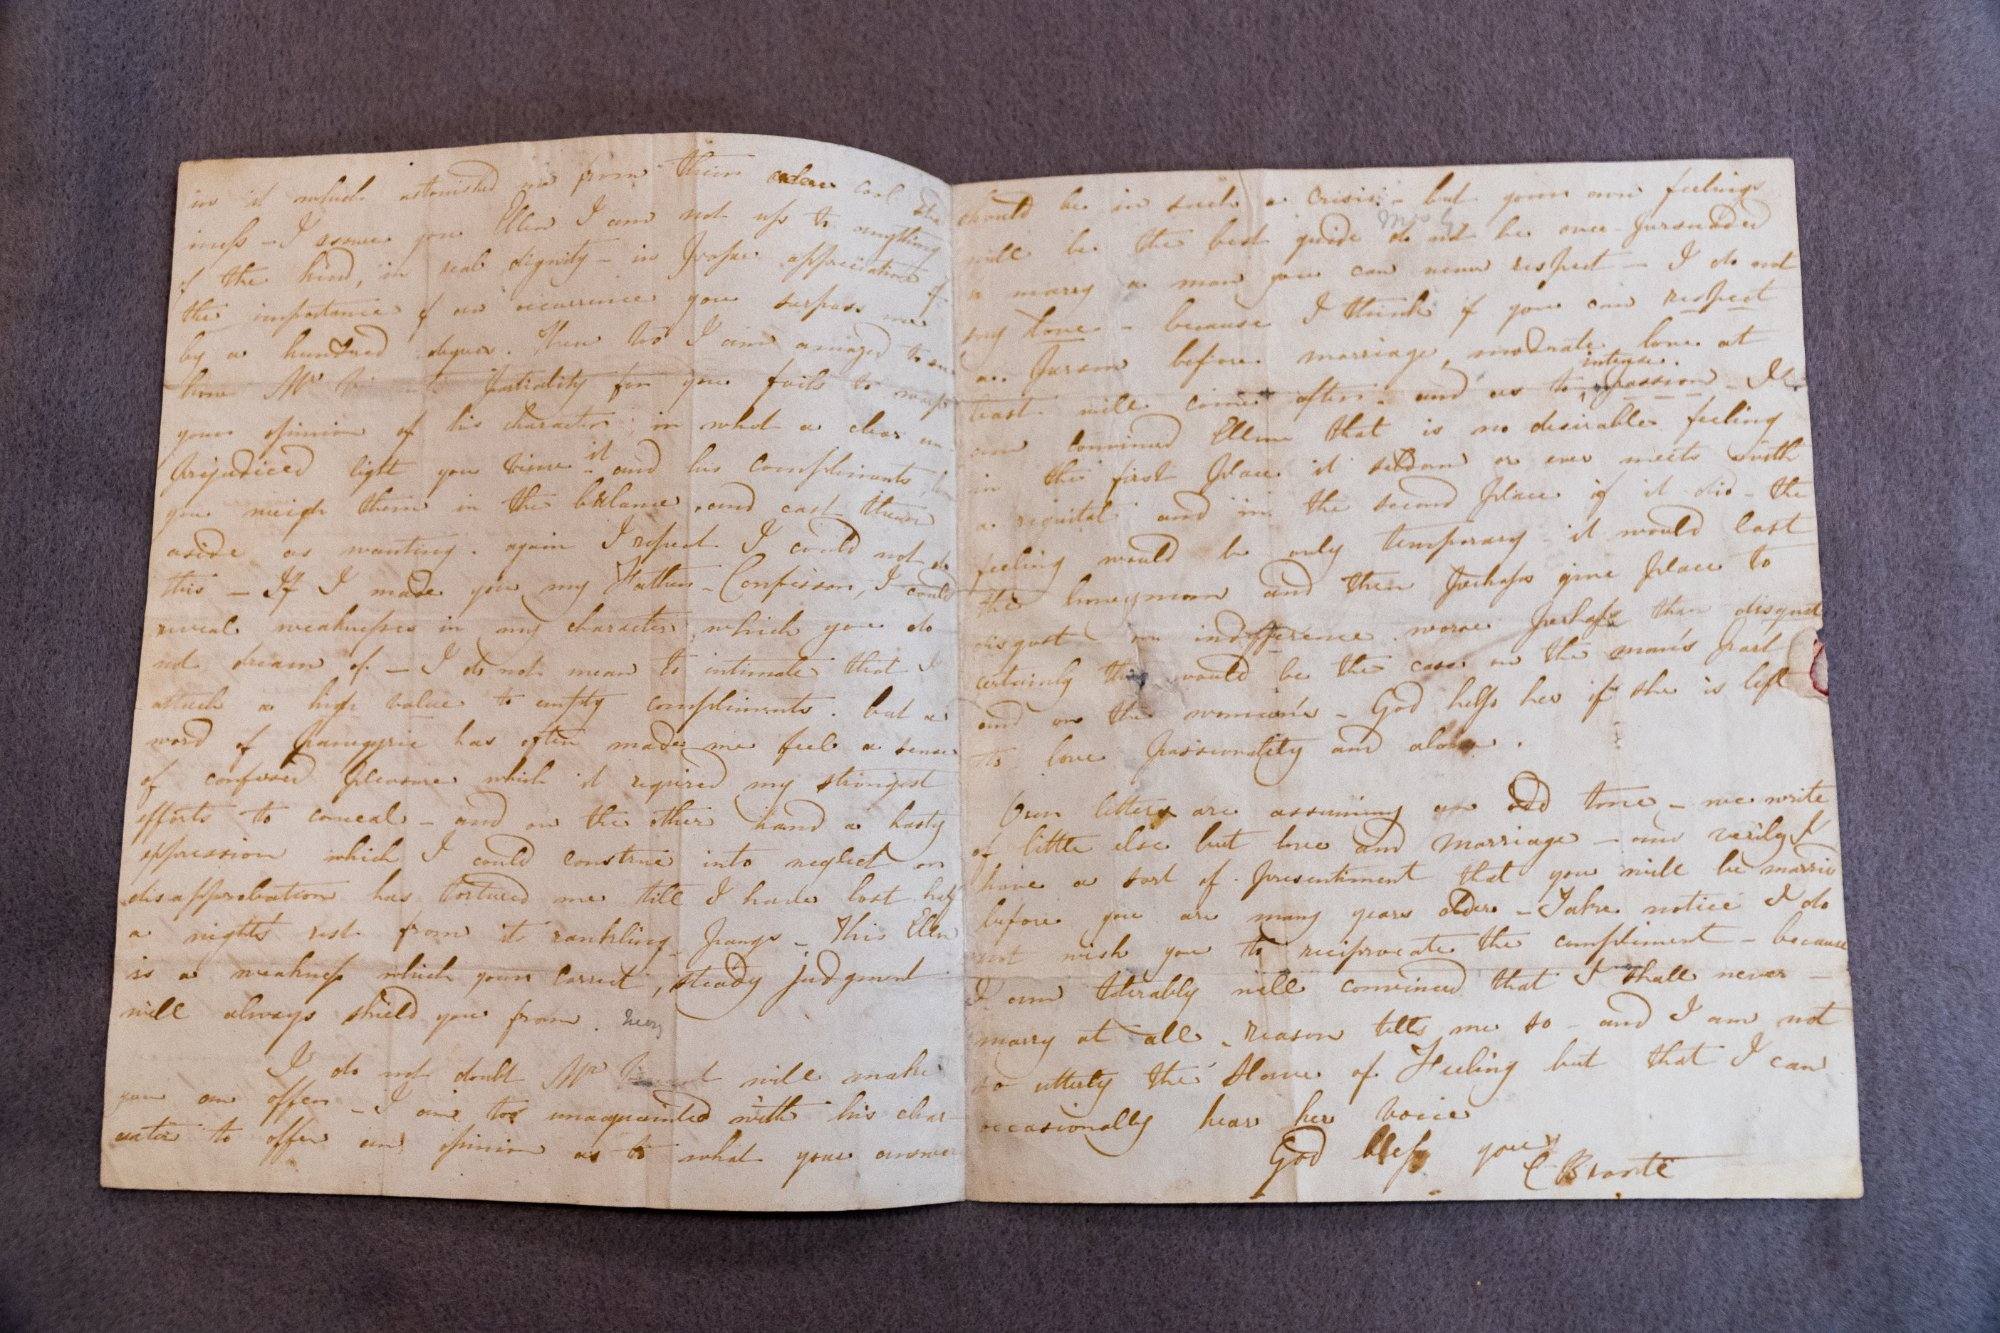 in it which astonished me from their extreme cool
iness - I assure you Ellen I am not up to anything
of the kind, in real dignity - in proper appreciation of
the importance of an occurrence you surpass me
by a hundred degrees. Then too I am amazed to see
how Mr Vincent's partiality for you fails to warp
your opinion of his character; in what a clear un-
prejudiced light you view it and his compliments, how
you weigh them in the balance, and cast them
aside as wanting. again I repeat I could not do
this - If I made you my Father-Confessor, I could
reveal weaknesses in my character which you do
not dream of. - I do not mean to intimate that I
attach a high value to empty compliments. but a
word of panegyric has often made me feel a sense
of confused pleasure which it required my strongest
efforts to conceal - and on the other hand a hasty
expression which I could construe into neglect or
disapprobation has tortured me till I have lost half
a night's rest from its rankling pangs - This Ellen
is a weakness which your correct, steady judgment
will always shield you from.
I do not doubt Mr Vincent will make
you an offer - I am too unacquainted with his char-
acter to offer any opinion as to what your answer
should be in such a crisis - but your own feelings
will be the best guide do not be over-persuaded
to marry a man you can never respect - I do not
say love - because I think if you can respect
a person before marriage, moderate love at
least will come after; and as to intense passion - I
am convinced Ellen that is no desirable feeling
in the first place it seldom or ever meets with
a requital and in the second place if it did - the
feeling would be only temporary - it would last
the honeymoon and then perhaps give place to
disgust or indifference worse perhaps than disgust
certainly this would be the case on the man's part
and on the woman's - God help her if she is left
to love passionately and alone.
Our letters are assuming an odd tone - we write
of little else but love and marriage - and verily I
have a sort of presentiment that you will be married
before you are many years older - Take notice I do
not wish you to reciprocate the compliment - because
I am tolerably well convinced that I shall never -
marry at all - reason tells me so - and I am not
so utterly the Slave of Feeling but that I can
occasionally hear her voice
God bless you
C Brontë